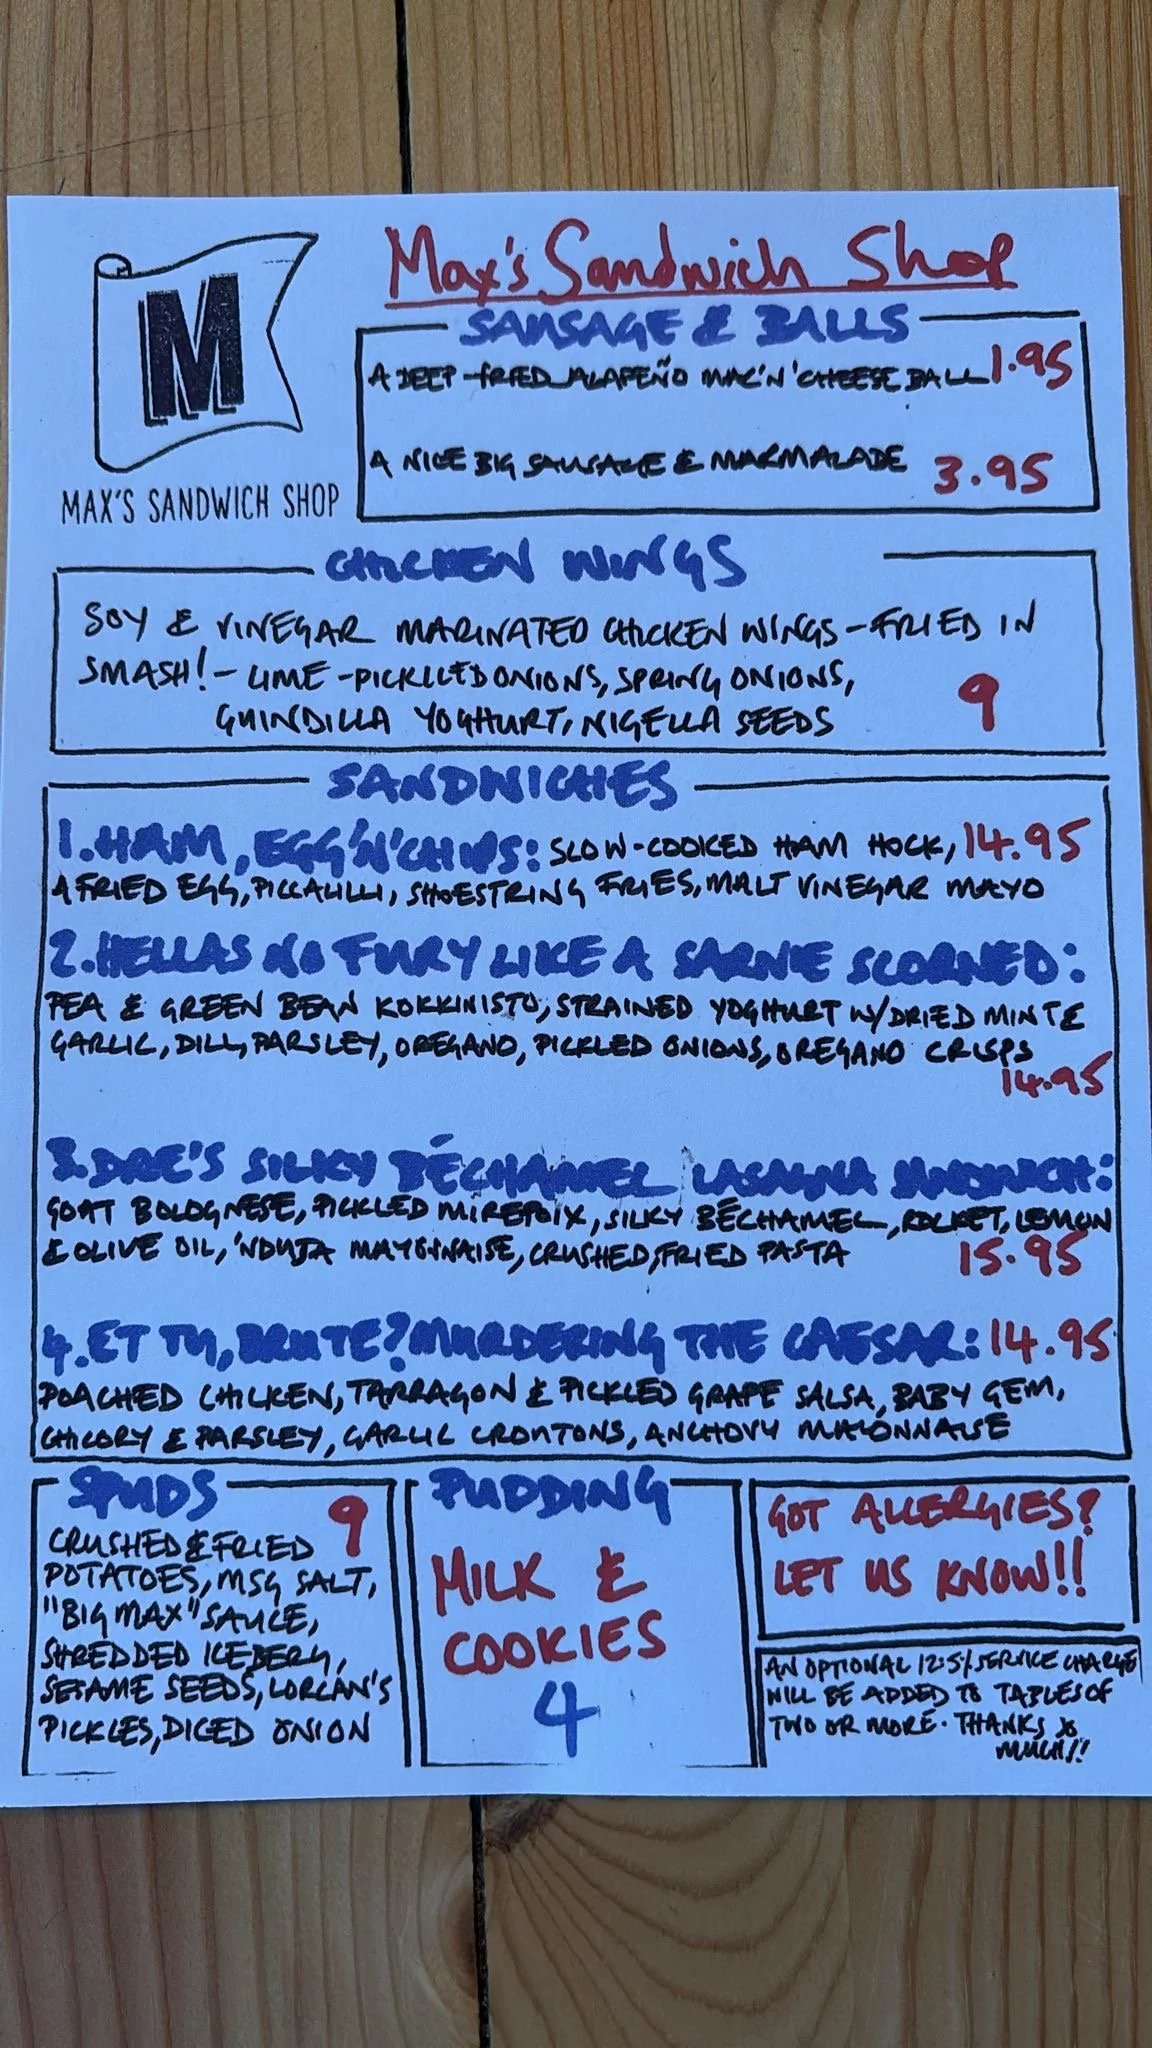 M
MAX'S SANDWICH SHOP
Max's Sandwich Shop
SAUSAGE & BALLS
A DEEP-FRIED JALAPEÑO MAC'N'CHEESE BALL 1.95
A NICE BIG SAUSAGE & MARMALADE 3.95
CHICKEN WINGS
SOY & VINEGAR MARINATED CHICKEN WINGS - FRIED IN
SMASH! - LIME-PICKLLED ONIONS, SPRING ONIONS,
GUINDILLA YOGHURT, NIGELLA SEEDS 9
SANDWICHES
1. HAM, EGG'N'CHIPS: SLOW-COOKED HAM HOCK, 14.95
A FRIED EGG, PICCALILLI, SHOESTRING FRIES, MALT VINEGAR MAYO
2. HELLAS NO FURY LIKE A SARNIE SCORNED:
PEA & GREEN BEAN KOKKINISTO, STRAINED YOGHURT W/DRIED MINT &
GARLIC, DILL, PARSLEY, OREGANO, PICKLED ONIONS, OREGANO CRISPS
14.95
3. DRE'S SILKY BÉCHAMEL LASAGNA SANDWICH:
GOAT BOLOGNESE, PICKLED MIREPOIX, SILKY BÉCHAMEL, ROCKET, LEMON
& OLIVE OIL, 'NDUJA MAYONNAISE, CRUSHED, FRIED PASTA 15.95
4. ET TU, BRUTE? MURDERING THE CAESAR: 14.95
POACHED CHICKEN, TARRAGON & PICKLED GRAPE SALSA, BABY GEM,
CHICORY & PARSLEY, GARLIC CROUTONS, ANCHOVY MAYONNAISE
SPUDS
9
CRUSHED & FRIED
POTATOES, MSG SALT,
"BIG MAX" SAUCE,
SHREDDED ICEBERG,
SESAME SEEDS, LORCÁN'S
PICKLES, DICED ONION
PUDDING
MILK &
COOKIES
4
GOT ALLERGIES?
LET US KNOW!!
AN OPTIONAL 12.5% SERVICE CHARGE
WILL BE ADDED TO TABLES OF
TWO OR MORE. THANKS SO
MUCH!!